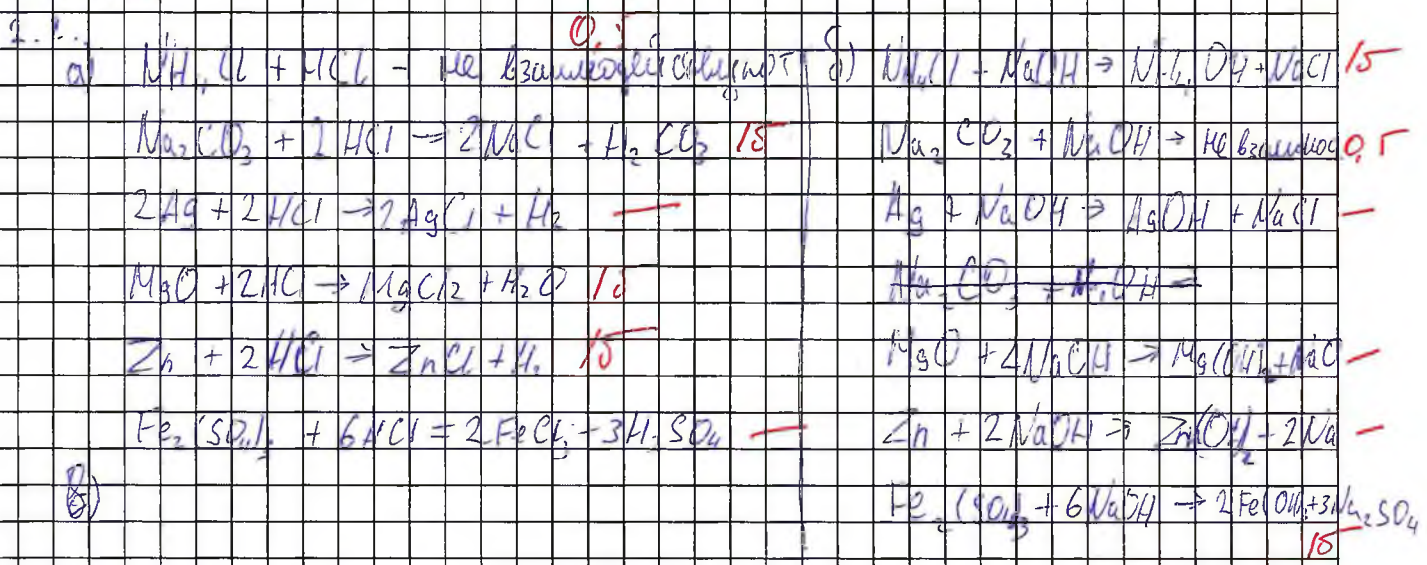 0,5
а) NH4Cl + HCl - не взаимодействуют
Na2CO3 + 2HCl → 2NaCl + H2CO3 1б
2Ag + 2HCl → 2AgCl + H2 —
MgO + 2HCl → MgCl2 + H2O 1б
Zn + 2HCl → ZnCl + H2 1б
Fe2(SO4)3 + 6HCl = 2FeCl3 - 3H2SO4 —
в)
б) NH4Cl + NaOH → NH4OH + NaCl 1б
Na2CO3 + NaOH → не взаимод 0,5
Ag + NaOH → AgOH + NaCl —
Na2CO3 + NaOH =
MgO + 2NaOH → Mg(OH)2 + NaO —
Zn + 2NaOH → Zn(OH)2 - 2Na —
Fe2(SO4)3 + 6NaOH → 2Fe(OH)3 + 3Na2SO4
1б